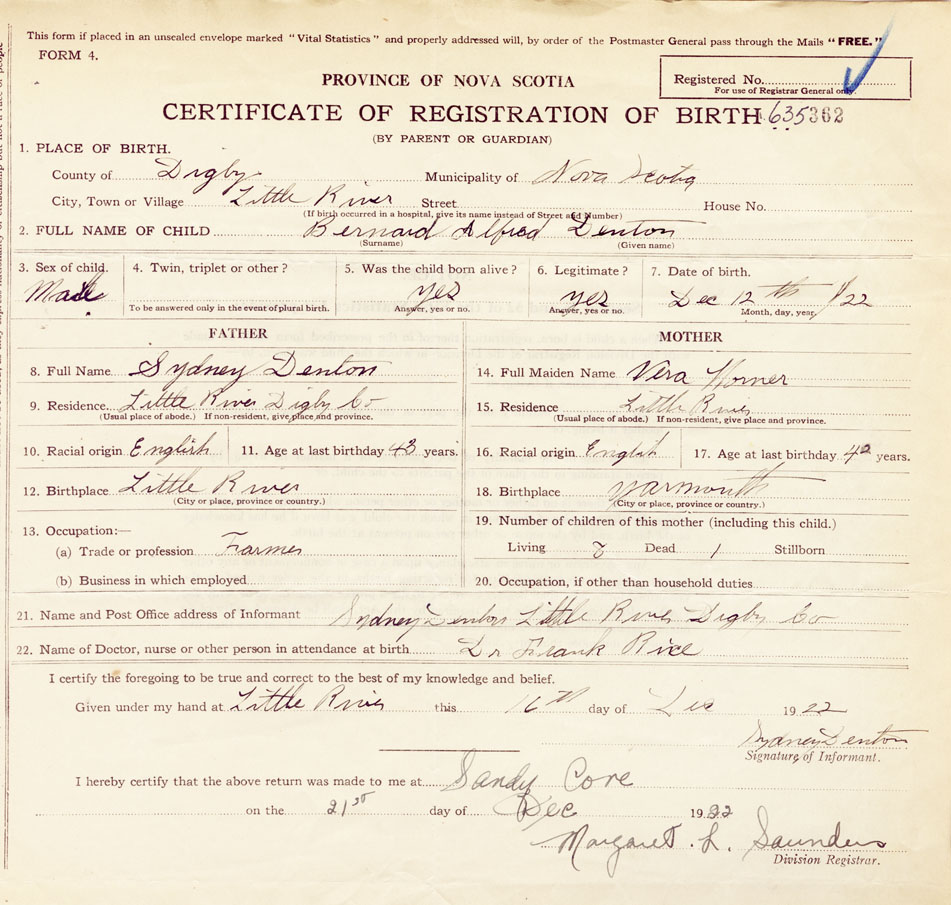 This form if placed in an unsealed envelope marked "Vital Statistics" and properly addressed will, by order of the Postmaster General pass through the Mails "FREE."
FORM 4.
PROVINCE OF NOVA SCOTIA
Registered No.
For use of Registrar General only.
CERTIFICATE OF REGISTRATION OF BIRTH 635362
(BY PARENT OR GUARDIAN)
1. PLACE OF BIRTH.
County of Digby Municipality of Nova Scotia
City, Town or Village Little River Street House No.
(If birth occurred in a hospital, give its name instead of Street and Number)
2. FULL NAME OF CHILD Bernard Alfred Denton
(Surname) (Given name)
3. Sex of child. 4. Twin, triplet or other? 5. Was the child born alive? 6. Legitimate? 7. Date of birth.
Male yes yes Dec 12th /22
To be answered only in the event of plural birth. Answer, yes or no. Answer, yes or no. Month, day, year.
FATHER MOTHER
8. Full Name Sydney Denton 14. Full Maiden Name Vera Horner
9. Residence Little River Digby Co 15. Residence Little River
(Usual place of abode.) If non-resident, give place and province. (Usual place of abode.) If non-resident, give place and province.
10. Racial origin English 11. Age at last birthday 43 years. 16. Racial origin English 17. Age at last birthday years.
12. Birthplace Little River 18. Birthplace Yarmouth
(City or place, province or country.) (City or place, province or country.)
13. Occupation:— 19. Number of children of this mother (including this child.)
(a) Trade or profession Farmer Living Dead 1 Stillborn
(b) Business in which employed 20. Occupation, if other than household duties
21. Name and Post Office address of Informant Sydney Denton Little River Digby Co
22. Name of Doctor, nurse or other person in attendance at birth Dr Frank Rice
I certify the foregoing to be true and correct to the best of my knowledge and belief.
Given under my hand at Little River this 16th day of Dec 1922
Sydney Denton
Signature of Informant.
I hereby certify that the above return was made to me at Sandy Cove
on the 21st day of Dec 1922
Margaret L. Saunders
Division Registrar.